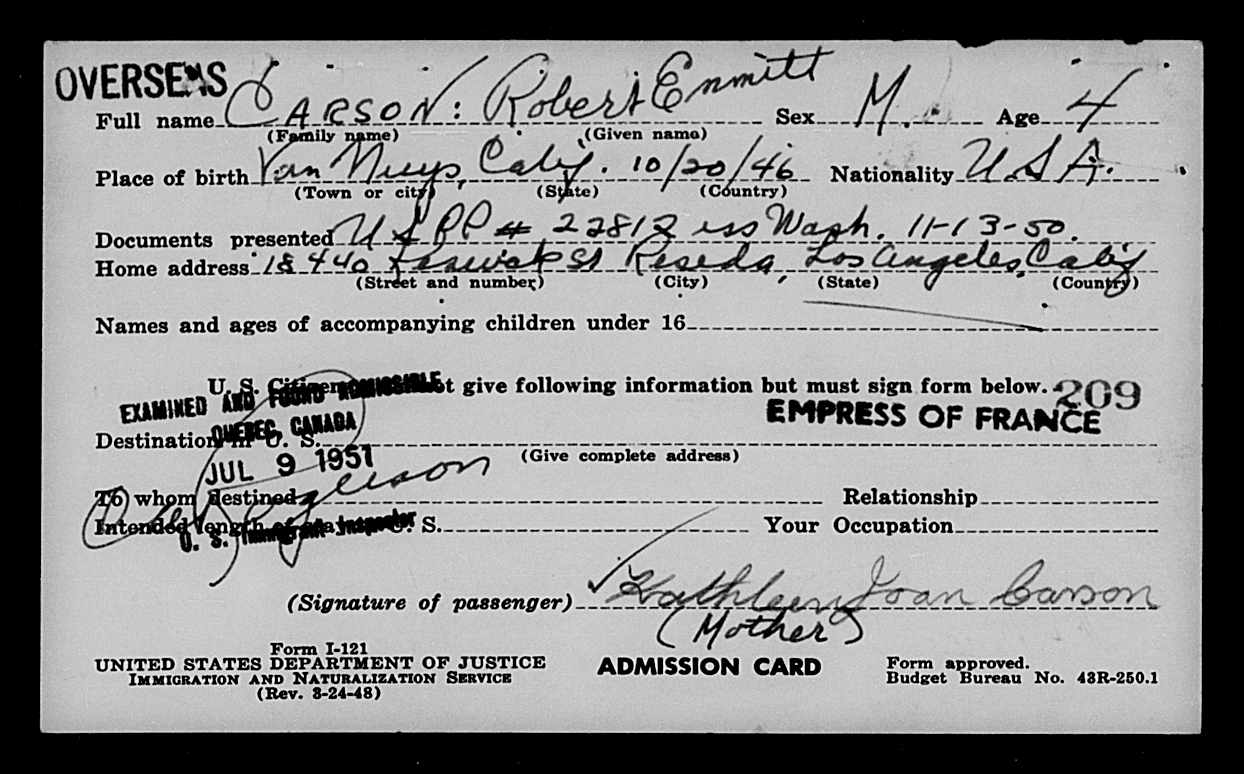 OVERSEAS
Full name CARSON: Robert Enmitt Sex M. Age 4
(Family name) (Given name)
Place of birth Van Nuys, Calif. 10/20/46 Nationality USA.
(Town or city) (State) (Country)
Documents presented US PP # 22812 iss Wash. 11-13-50.
Home address 18440 St Reseda, Los Angeles, Calif
(Street and number) (City) (State) (Country)
Names and ages of accompanying children under 16
U. S. Citizens not give following information but must sign form below. 209
EXAMINED AND FOUND ADMISSIBLE
EMPRESS OF FRANCE
QUEBEC, CANADA
Destination in U. S.
(Give complete address)
JUL 9 1951
To whom destined Relationship
Intended length of stay in U. S. Your Occupation
U. S. Immigrant Inspector
(Signature of passenger) Kathleen Joan Carson
(Mother)
Form I-121
UNITED STATES DEPARTMENT OF JUSTICE
IMMIGRATION AND NATURALIZATION SERVICE
(Rev. 3-24-48)
ADMISSION CARD
Form approved.
Budget Bureau No. 43R-250.1